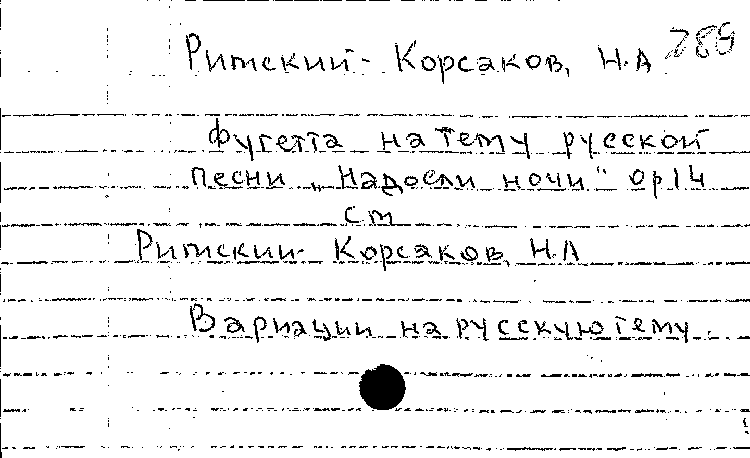 Римский- Корсаков, Н.А 289
Фугетта на тему русской
песни „Надоели ночи“ op 14
см
Римский- Корсаков, Н.А
Вариации на русскую тему.